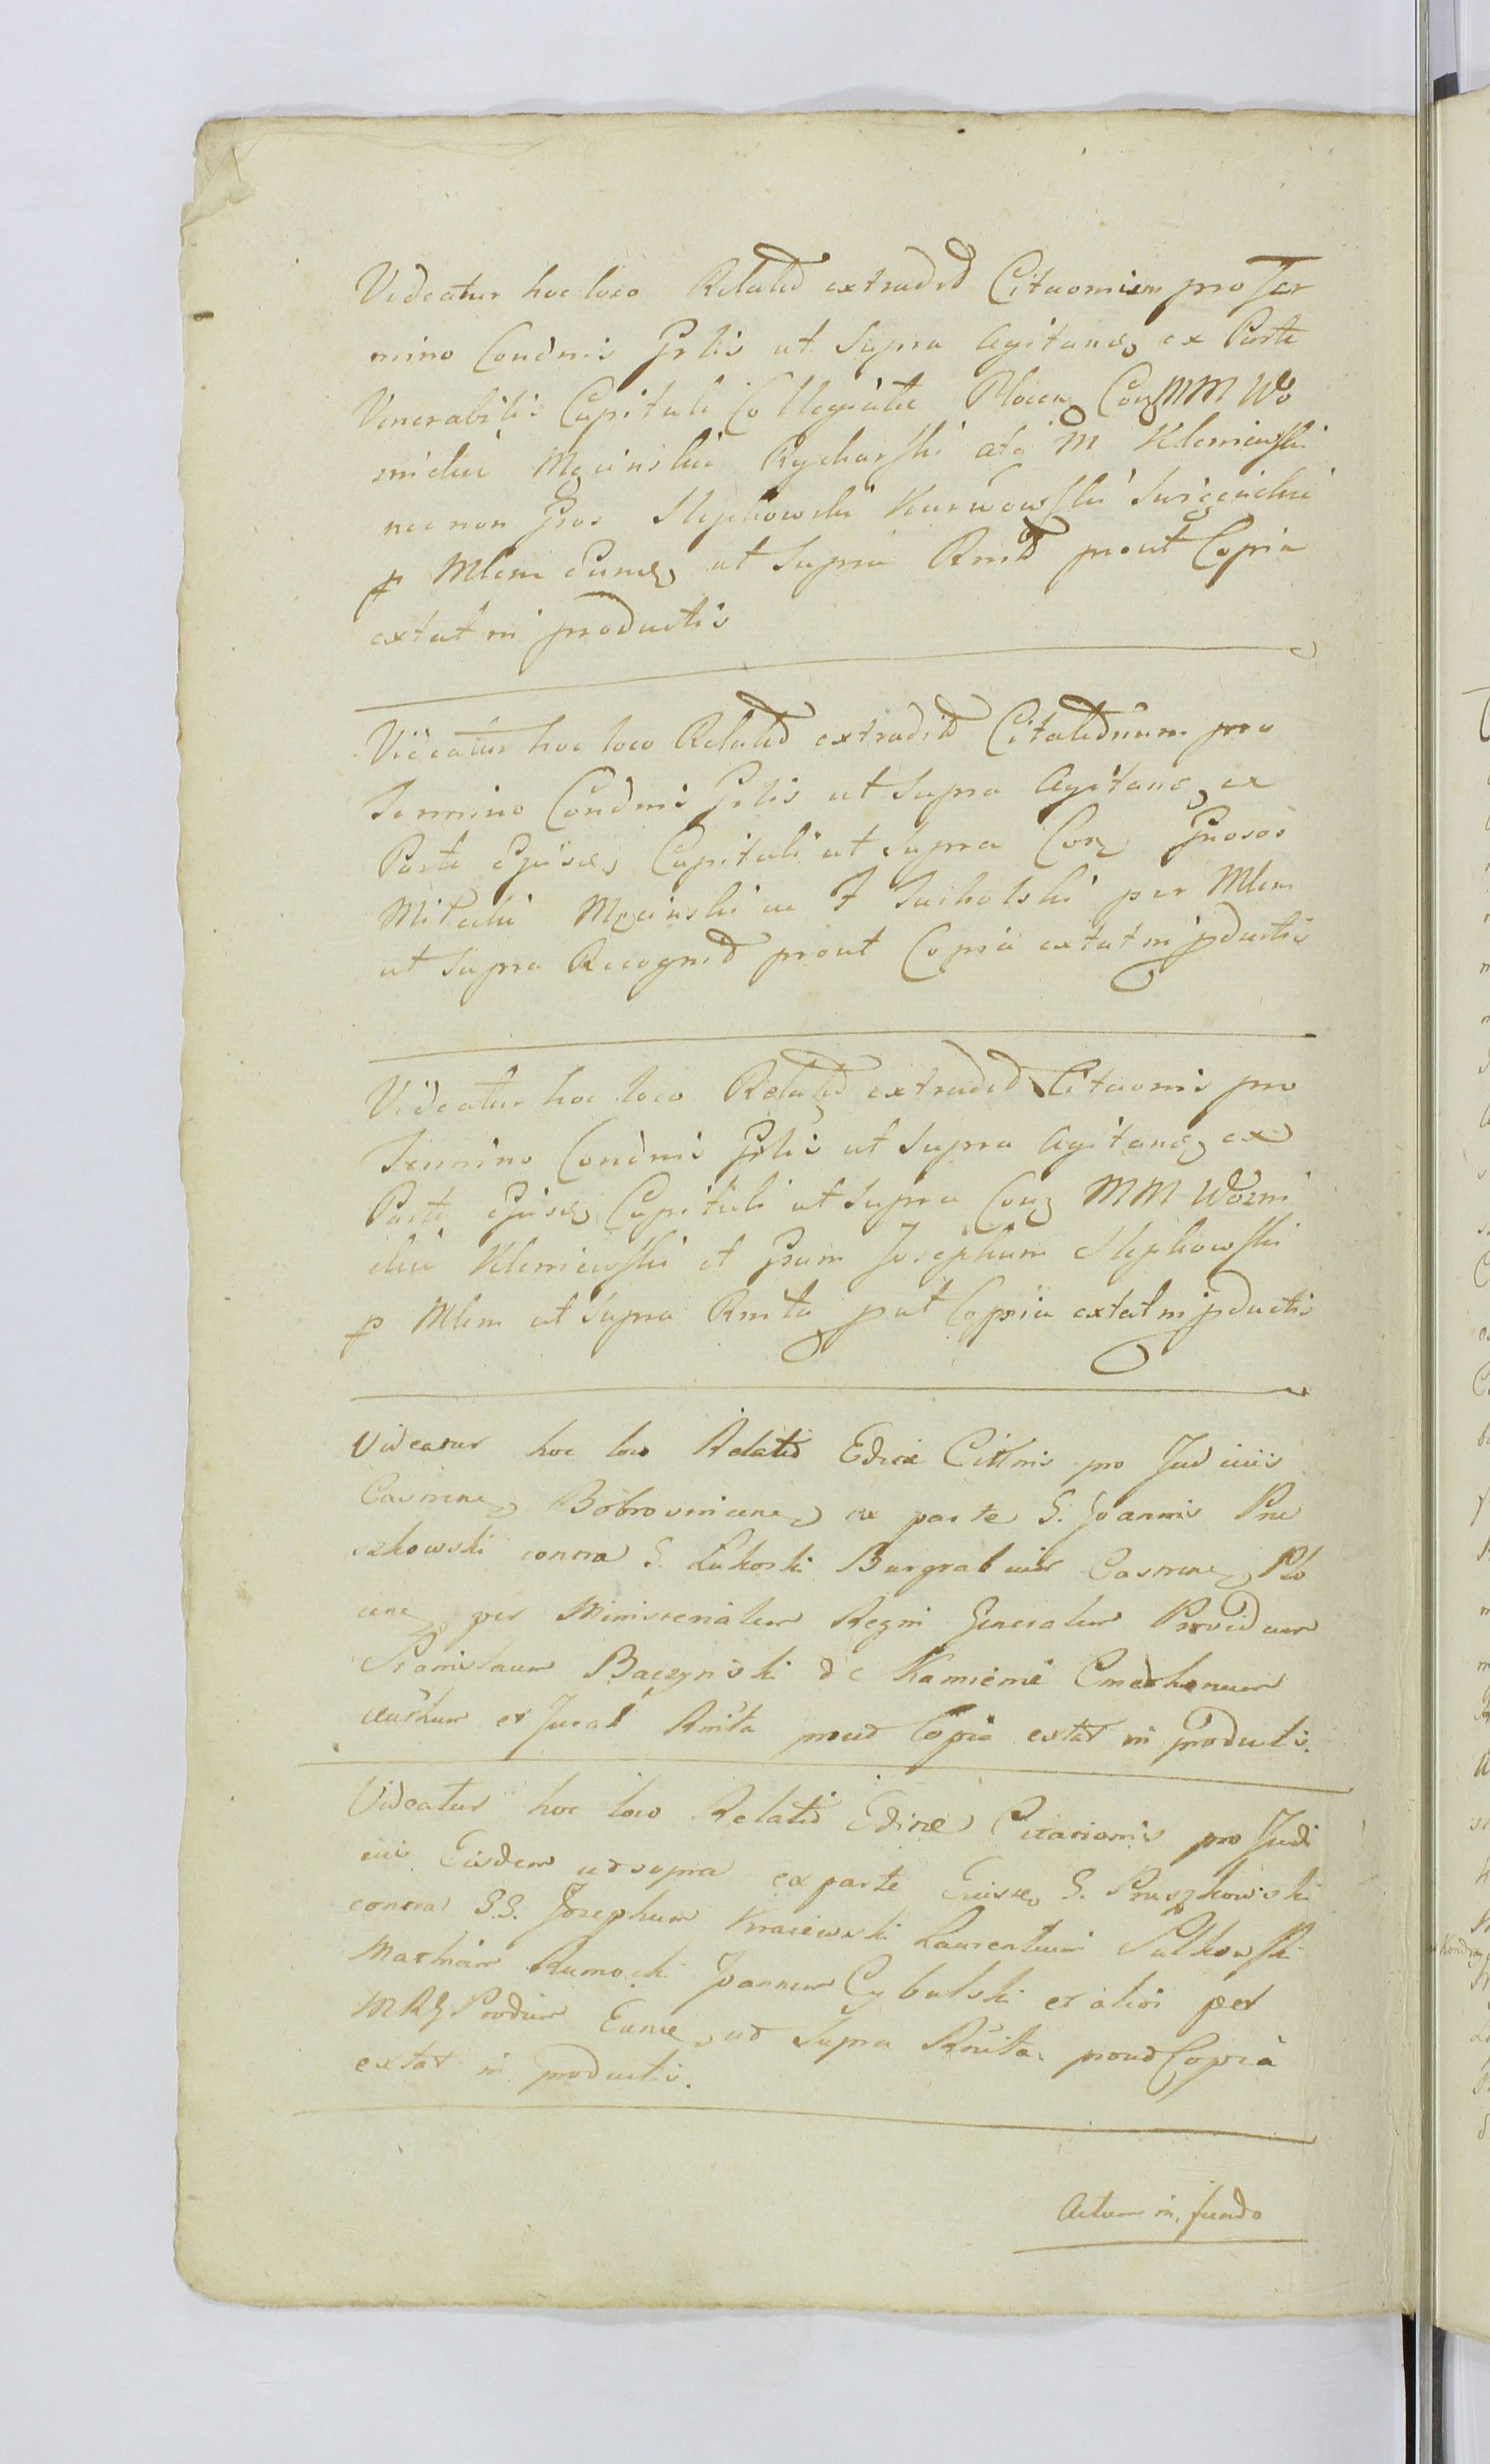 Videatur hoc loco Relatio extradit Citaonium pro Ter
mino Condnis Grlis ut Supra Agitand ex Parte
Venerabilis Capituli Collegiate Plocen Con MM Wo
znicki Męcinski Rycharski atq M Kleniewski
nec non Gros Slepkowski Karwowski Swięcicki
p Mlem Eund ut Supra Rnit prout Copia
extat in productis
Videatur hoc loco Relatio extradit Citationum pro
Termino Condnis Grlis ut Supra Agitand ex
Parte Ejusd Capituli ut Supra Con Gnosos
Mitecki Męcinski ac J Sucholski per Mlem
ut Supra Recognit prout Copia extat in pductis
Videatur hoc loco Relatio extradit Citaonis pro
Termino Condnis Grlis ut Supra Agitand ex
Parte Ejusd Capituli ut Supra Con MM Wozni
cki Kleniewski et Grum Josephum Slepkowski
p Mlem ut Supra Rnita put Copia extat in pductis
Videatur hoc loco Relatio Edica Cittnis pro Judiciis
Castrens Bobrovnicens ex parte G. Joannis Pru
szkowski contra G. Lukoski Burgrabium Castrens Plo
cens per Ministerialem Regni Generalem Providum
Stanislaum Baczynski de Kamienie Cmethonum
Authum et Jurat Rnita prout Copia extat in productis.
Videatur hoc loco Relatio Edicte Citationis pro Judi
ciis Eisdem ut supra ex parte Eiusd G. Pruszkowski
contra G.G. Josephum Kraiewski Laurentium Sulkowski
Mathiam Rumocki Joannem Cybulski et alios per
MRG Prodium Eund ut Supra Rnita prout Copia
extat in productis.
Actum in fundo